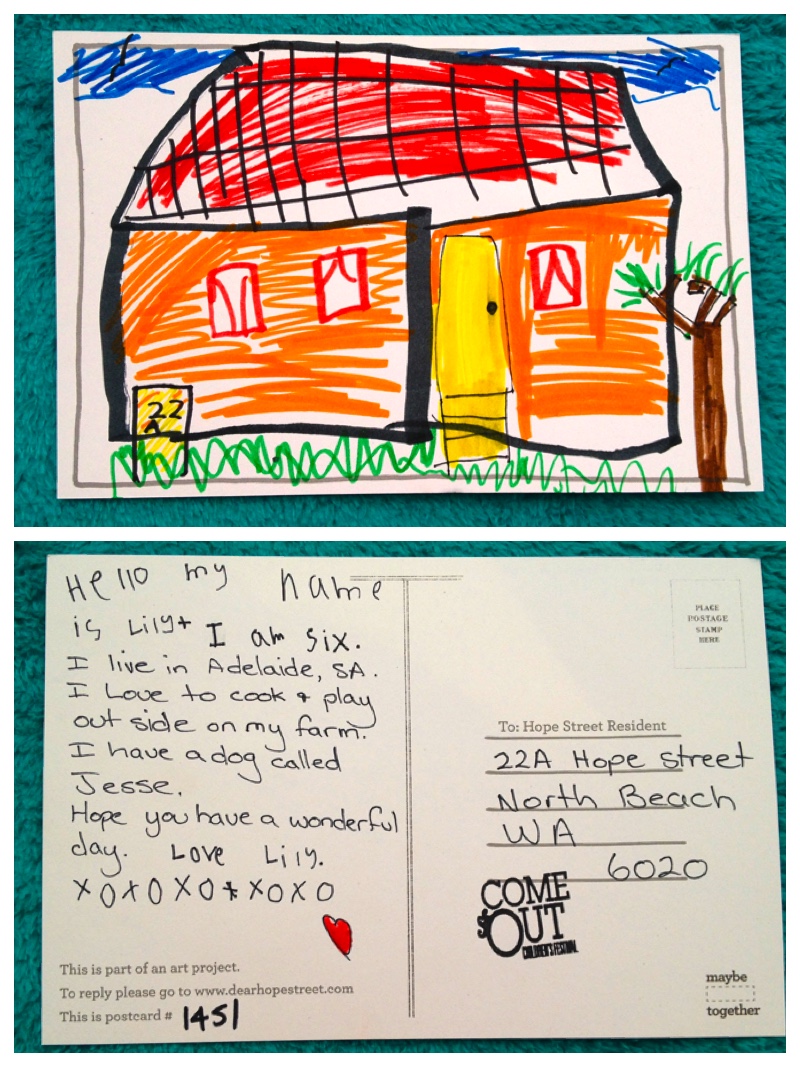 22
A
Hello my name
is Lily+ I am six.
I live in Adelaide, SA.
I Love to cook + play
out side on my farm.
I have a dog called
Jesse.
Hope you have a wonderful
day. Love Lily.
XOXOXO+XOXO
This is part of an art project.
To reply please go to www.dearhopestreet.com
This is postcard # 1451
PLACE
POSTAGE
STAMP
HERE
To: Hope Street Resident
22A Hope street
North Beach
WA
6020
COME
OUT
CHILDREN'S FESTIVAL
maybe
together